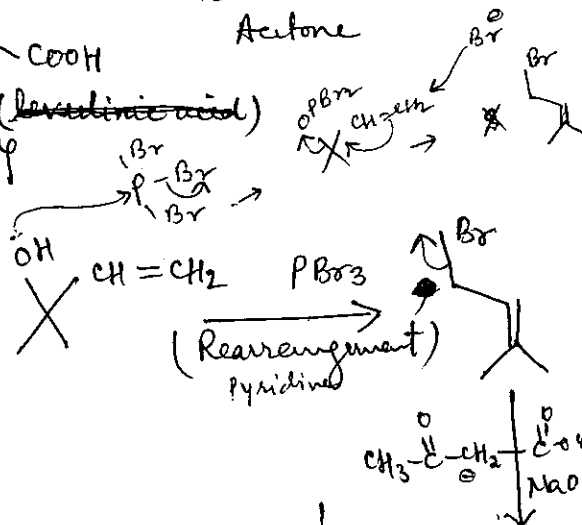 Acetone
COOH
(levulinic acid)
Br⊖
OPBr2
CH=CH2
Br
Br
P-Br
Br
ÖH
CH=CH2
PBr3
Br
(Rearrangement)
Pyridine
O
O
CH3-C-CH2-C-O
⊖
NaO